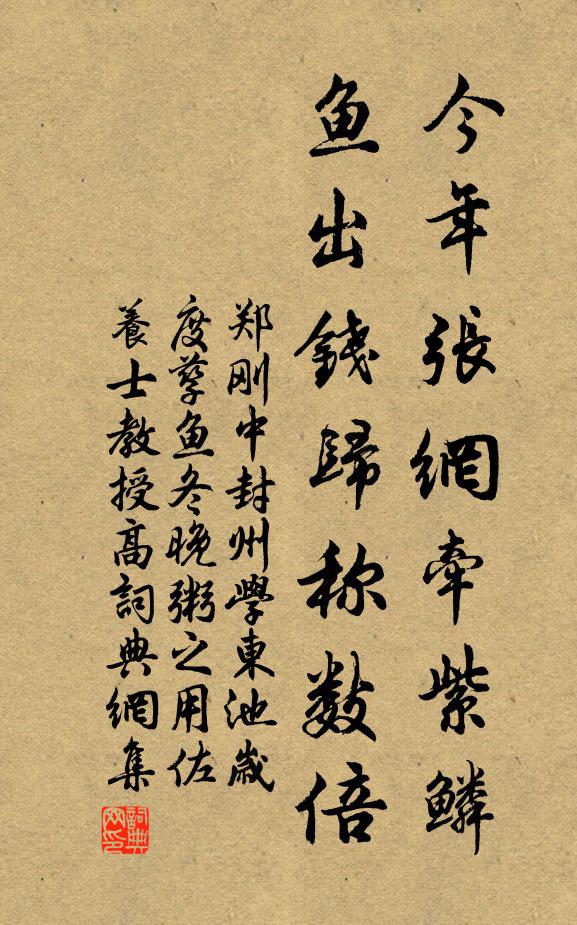 今年張網牽紫鱗
鱼出錢歸称数倍
郑刚中封州學東池歲
度孳鱼冬晚粥之用佐
養士教授高詞典網集
詞典
网印